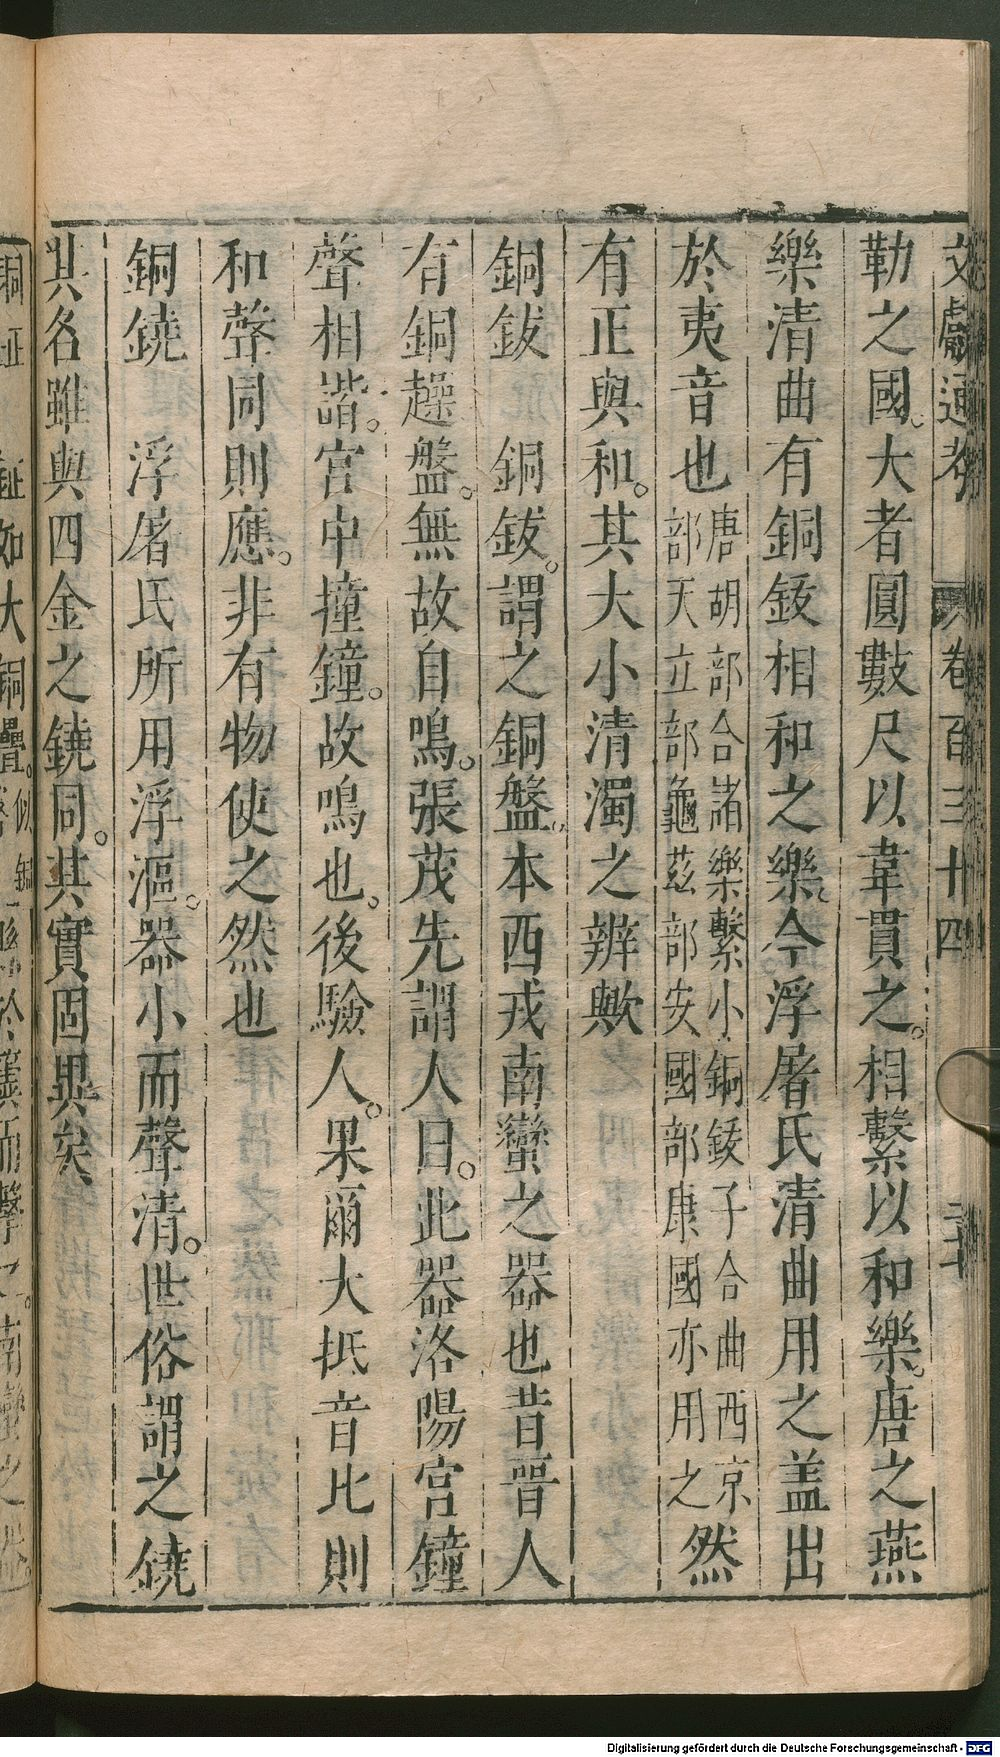 文獻通考 卷百三十四
勒之國。大者圓數尺以韋貫之。相繫以和樂。唐之燕
樂清曲有銅鈸相和之樂。今浮屠氏清曲用之盖出
於夷音也唐胡部合諸樂繫小銅鈸子合曲西京部天立部龜茲部安國部康國亦用之然
有正與和。其大小清濁之辨歟
銅鈸 銅鈸。謂之銅盤。本西戎南蠻之器也昔晉人
有銅𨅶盤。無故自鳴。張茂先謂人曰。此器洛陽宮鐘
聲相諧。宮中撞鐘。故鳴也。後驗人。果爾大抵音比則
和聲同則應。非有物使之然也
銅鐃 浮屠氏所用浮漚。器小而聲清。世俗謂之鐃
其名雖與四金之鐃同。其實固異矣
Digitalisierung gefördert durch die Deutsche Forschungsgemeinschaft - DFG